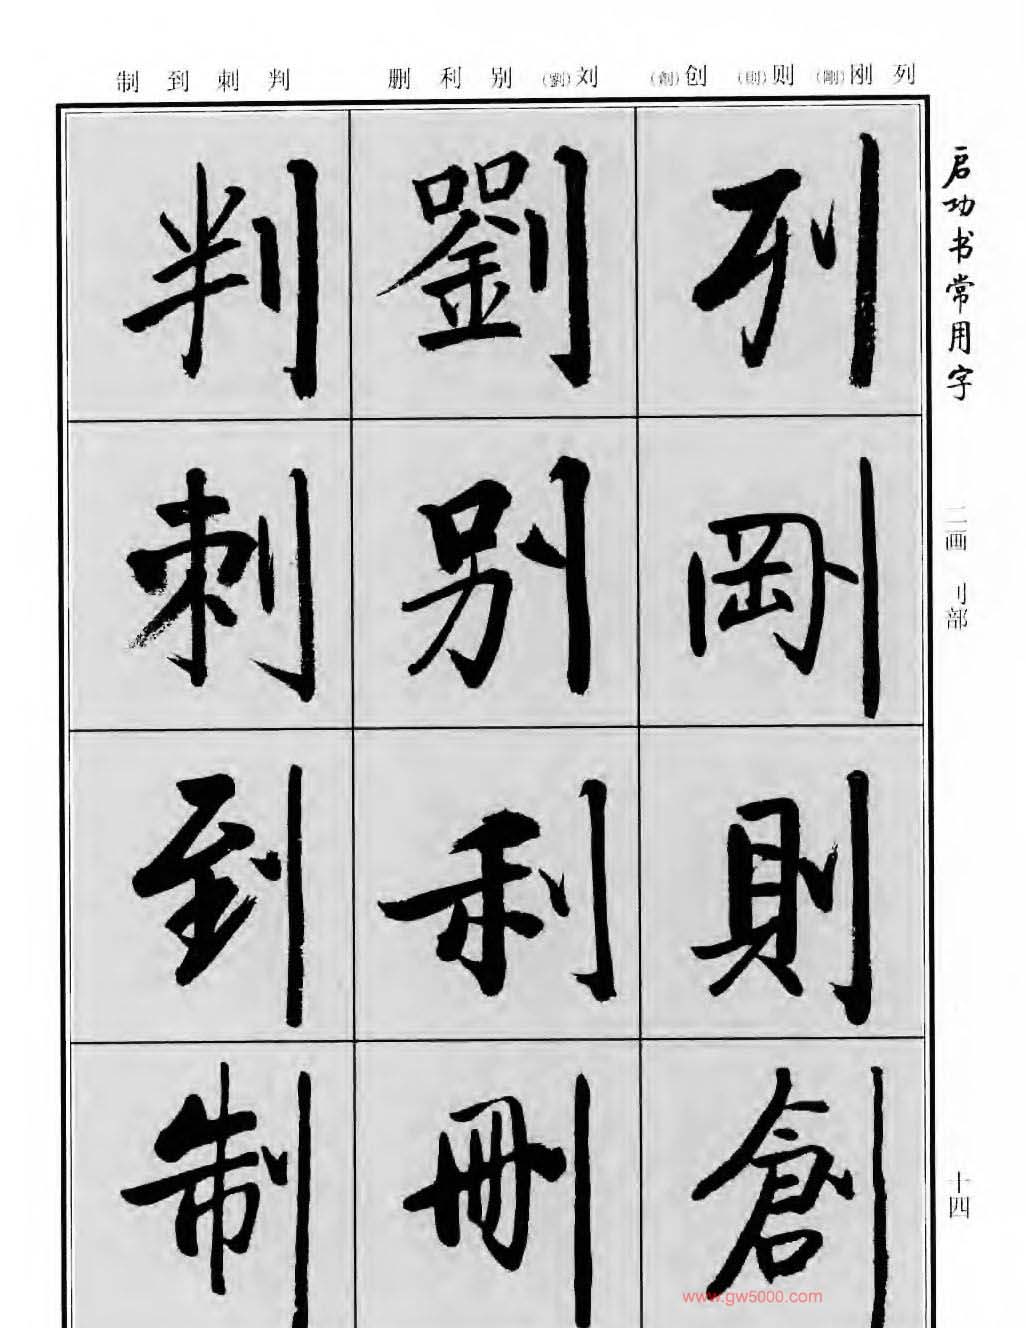 列 刚(剛) 则(則) 创(創) 刘(劉) 别 利 删 判 刺 到 制
启功书常用字
二画 刂部
十四
列
剛
則
創
劉
别
利
删
判
刺
到
制
www.gw5000.com